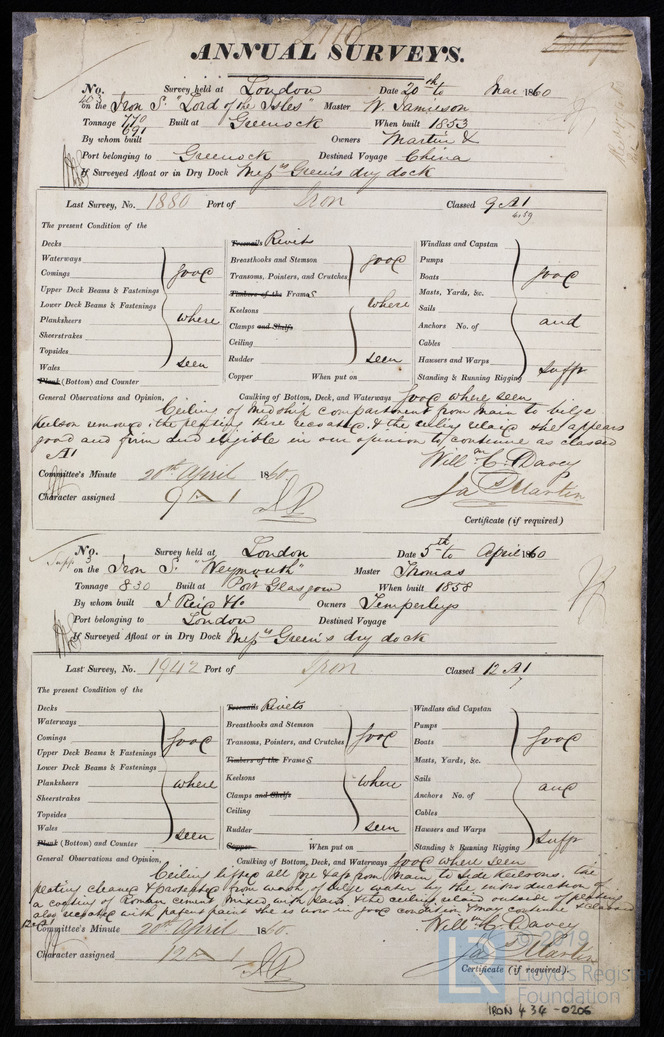 ANNUAL SURVEYS.
No. 453 Survey held at London Date 20th to Mar 1860
on the Iron S. "Lord of the Isles" Master W. Jamieson
Tonnage 770 691 Built at Greenock When built 1853
By whom built Owners Martin &
Port belonging to Greenock Destined Voyage China
If Surveyed Afloat or in Dry Dock Messrs Green's dry dock
Last Survey, No. 1880 Port of Iron Classed 9 A1
4.59
The present Condition of the
Decks Treenails Rivets Windlass and Capstan
Waterways Breasthooks and Stemson Pumps
Comings good Transoms, Pointers, and Crutches good Boats good
Upper Deck Beams & Fastenings Timbers of the Frames Masts, Yards, &c.
Lower Deck Beams & Fastenings Keelsons where Sails
Planksheers where Clamps and Shelfs Anchors No. of and
Sheerstrakes Ceiling Cables
Topsides Rudder seen Hawsers and Warps
Wales seen Copper When put on Standing & Running Rigging sufft
Plank (Bottom) and Counter
General Observations and Opinion, Caulking of Bottom, Deck, and Waterways good where seen
Ceiling of midship compartment from main to bilge
Keelson removed, the plating there & the ceiling she appears
good and firm and eligible in our opinion to continue as classed
A1
Willm C. Davey
Committee's Minute 20th April 1860.
Jas Martin
Character assigned 9 A 1
Certificate (if required)
No. Survey held at London Date 5th to April 1860
Supp 3 on the Iron S. "Weymouth" Master Thomas
Tonnage 830 Built at Port Glasgow When built 1858
By whom built J Reid & Co Owners Temperleys
Port belonging to London Destined Voyage
If Surveyed Afloat or in Dry Dock Messrs Green's dry dock
Last Survey, No. 1942 Port of Iron Classed 12 A1
7
The present Condition of the
Decks Treenails Rivets Windlass and Capstan
Waterways Breasthooks and Stemson Pumps
Comings good Transoms, Pointers, and Crutches good Boats good
Upper Deck Beams & Fastenings Timbers of the Frames Masts, Yards, &c.
Lower Deck Beams & Fastenings Keelsons where Sails
Planksheers where Clamps and Shelfs Anchors No. of and
Sheerstrakes Ceiling Cables
Topsides Rudder seen Hawsers and Warps
Wales seen Copper When put on Standing & Running Rigging sufft
Plank (Bottom) and Counter
General Observations and Opinion, Caulking of Bottom, Deck, and Waterways good where seen
Ceiling lifted all fore & aft from Main to Side Keelsons. the
plating cleaned & protected from wash of bilge water by the introduction of
a coating of Roman cement, mixed with & the ceiling outside of plating
also recoated with patent paint she is now in good condition & may continue as classed
12 A1
Willm C. Davey
Committee's Minute 20th April 1860.
Jas Martin
Character assigned 12 A 1
Certificate (if required).
LR © 2019
Lloyd's Register
Foundation
IRON 434-0206